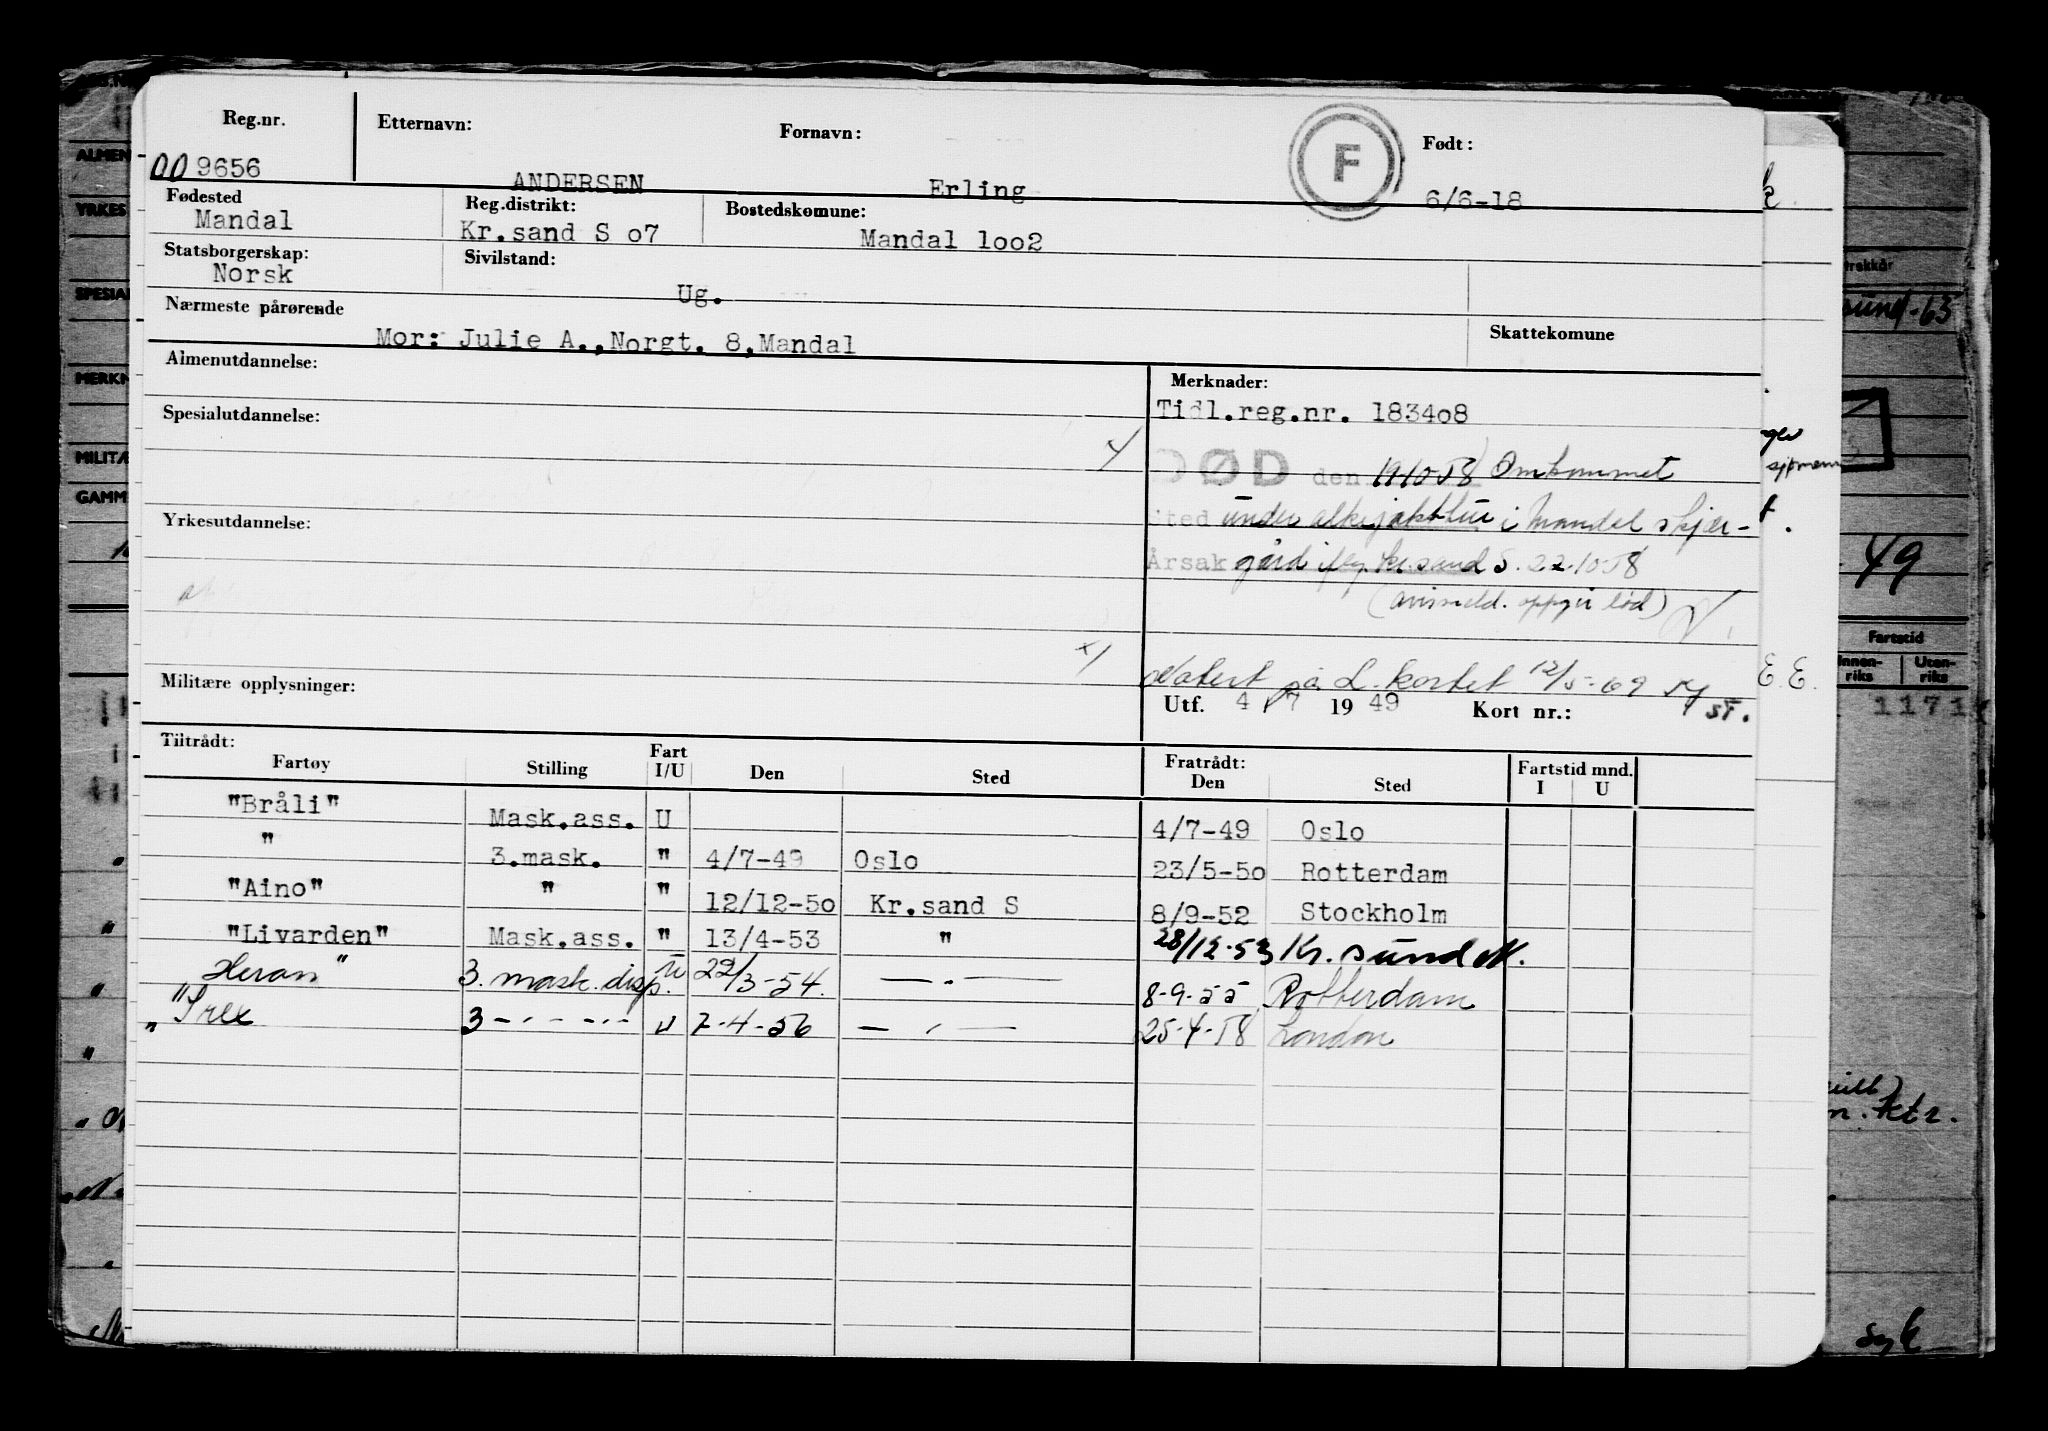 Reg.nr. Etternavn: Fornavn: F Født:
009656 ANDERSEN Erling 6/6-18
Fødested Reg.distrikt: Bostedskomune:
Mandal Kr.sand S o7 Mandal loo2
Statsborgerskap: Sivilstand:
Norsk Ug.
Nærmeste pårørende Skattekomune
Mor: Julie A.,Norgt. 8,Mandal
Almenutdannelse: Merknader:
Spesialutdannelse: Tidl.reg.nr. 1834o8
DØD den 19/10-58 Omkommet
Sted under alkejakttur i Mandal skjær-
Yrkesutdannelse:
Årsak gård iflg. Kr.sand S. 22.10-58
(avismeld. oppgir død)
Notert på L.kortet 12/5-69
Militære opplysninger: Utf. 4/7 1949 Kort nr.: ST.
Tiltrådt: Fart Fratrådt: Fartstid mnd.
Fartøy Stilling I/U Den Sted Den Sted I U
"Bråli" Mask.ass. U 4/7-49 Oslo
" 3.mask. " 4/7-49 Oslo 23/5-5o Rotterdam
"Aino" " " 12/12-5o Kr.sand S 8/9-52 Stockholm
"Livarden" Mask.ass. " 13/4-53 " 28/12-53 Kr.sund N.
Heran" 3. mask. disp. U 22/3-54. — " — 8-9-55 Rotterdam
"Irex 3 — " — U 7-4-56 — " — 25-4-58 London
ALMEN
YRKES
SPESIAL
MERKN
MILITÆ
GAMM
trekkår
sund-65
49
Fartstid
Innen-riks Uten-riks
E.E.
1171
ktr.
syk